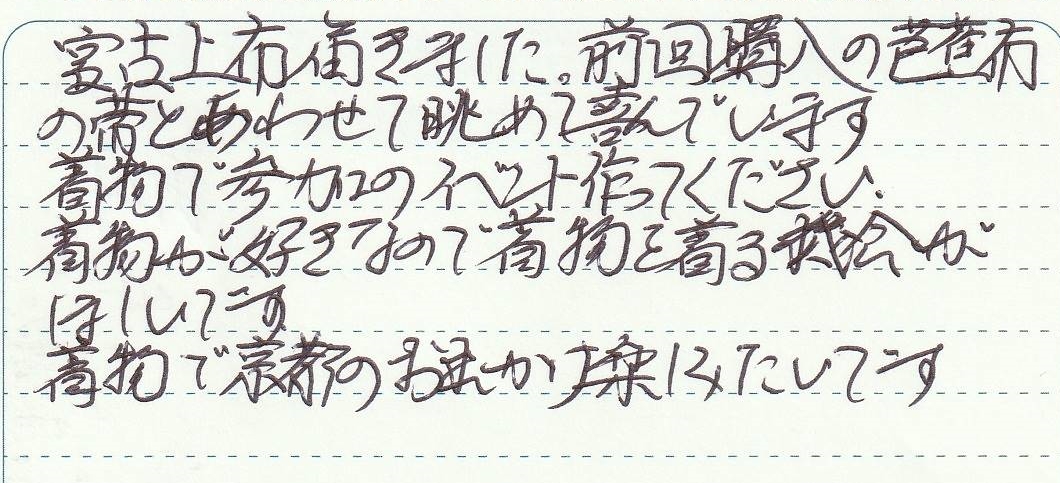 宮古上布届きました。前回購入の芭蕉布
の帯とあわせて眺めて喜んでいます
着物で参加のイベント作ってください.
着物が好きなので着物を着る機会が
ほしいです
着物で京都のお出かけ楽しみたいです